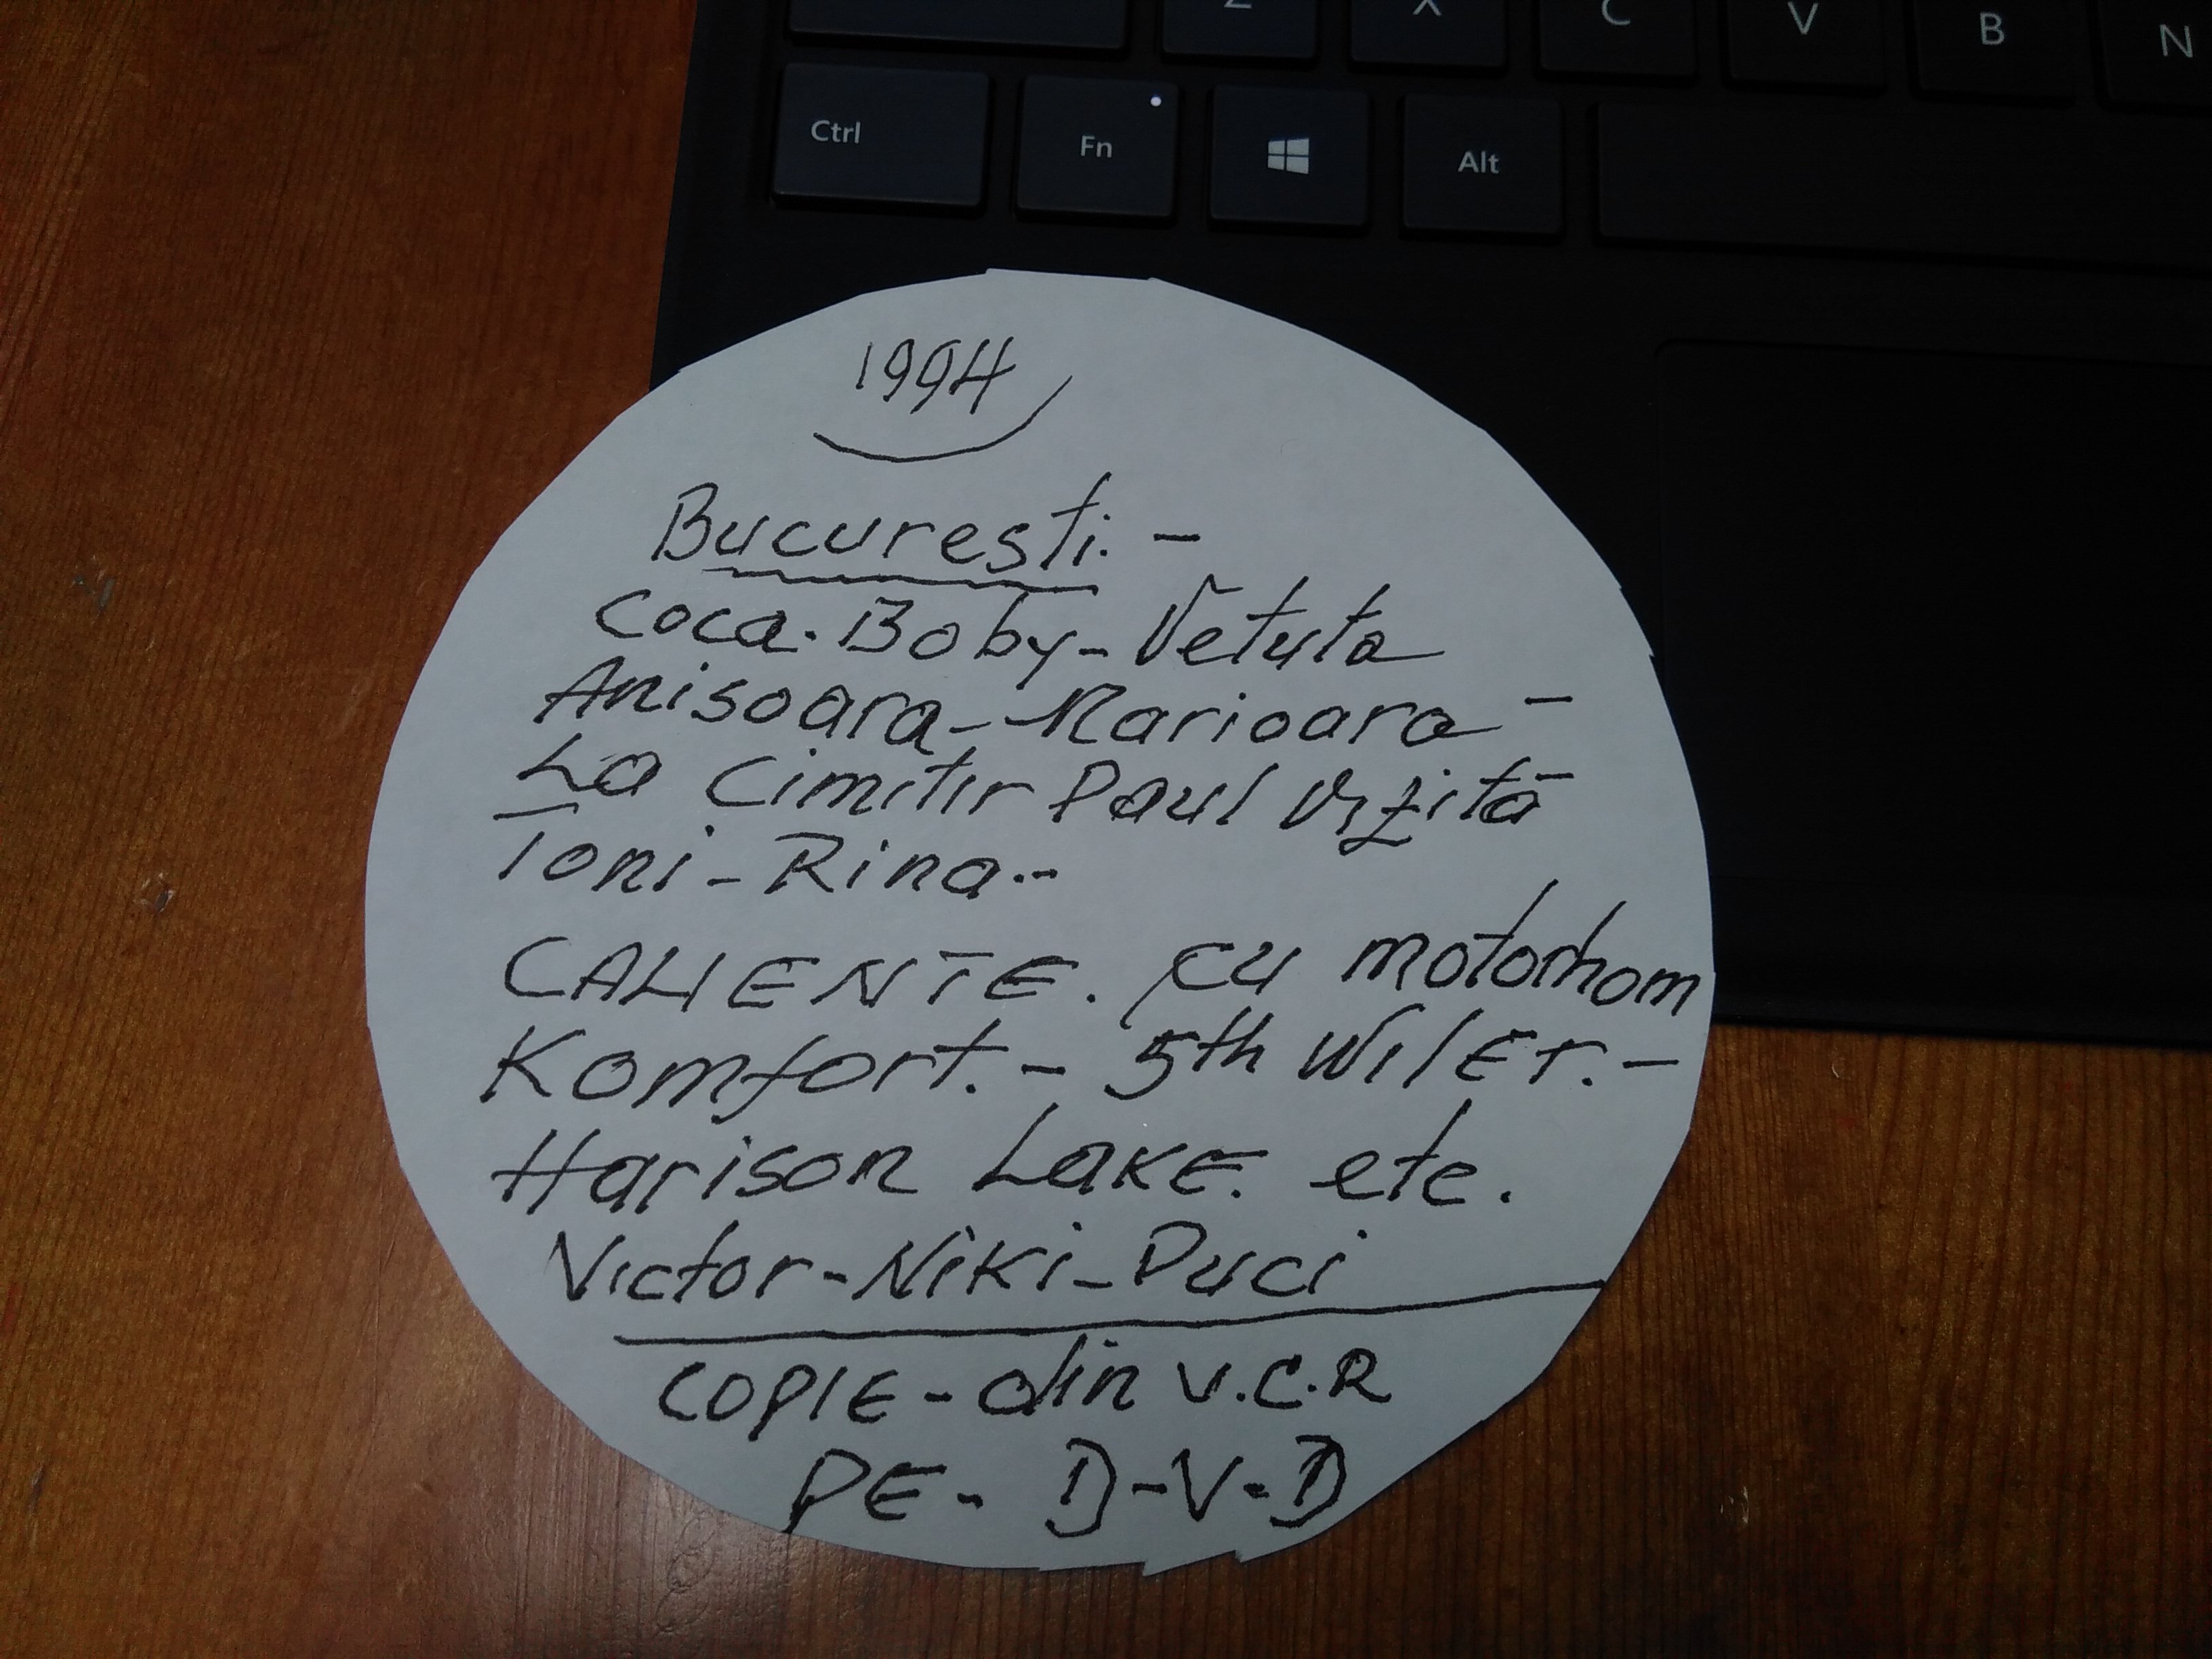 Z X C V B N
Ctrl Fn Alt
1994
Bucuresti. -
Coca. Boby - Vetuta
Anisoara - Marioara -
La Cimitir Paul Vizită
Toni - Rina --
CALIENTE. cu motorhom
Komfort. - 5th WilEr. -
Harison LakE. etc.
Victor - Niki - Puci
COPIE - din V.C.R
PE - D-V-D